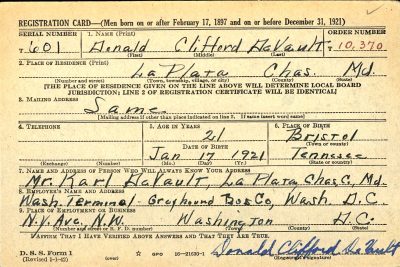 REGISTRATION CARD—(Men born on or after February 17, 1897 and on or before December 31, 1921)
SERIAL NUMBER 1. NAME (Print) ORDER NUMBER
T 601 Donald Clifford DaVault T 10,370
(First) (Middle) (Last)
2. PLACE OF RESIDENCE (Print)
La Plata Chas. Md.
(Number and street) (Town, township, village, or city) (County) (State)
[THE PLACE OF RESIDENCE GIVEN ON THE LINE ABOVE WILL DETERMINE LOCAL BOARD
JURISDICTION; LINE 2 OF REGISTRATION CERTIFICATE WILL BE IDENTICAL]
3. MAILING ADDRESS
Same
[Mailing address if other than place indicated on line 2. If same insert word same]
4. TELEPHONE 5. AGE IN YEARS 6. PLACE OF BIRTH
21 Bristol
DATE OF BIRTH (Town or county)
Jan 17 1921 Tennessee
(Exchange) (Number) (Mo.) (Day) (Yr.) (State or country)
7. NAME AND ADDRESS OF PERSON WHO WILL ALWAYS KNOW YOUR ADDRESS
Mr. Karl DaVault, La Plata Chas. C. Md.
8. EMPLOYER'S NAME AND ADDRESS
Wash. Terminal - Greyhound Bos Co, Wash. D.C.
9. PLACE OF EMPLOYMENT OR BUSINESS
N.Y. Ave. N.W. Washington D.C.
(Number and street or R. F. D. number) (Town) (County) (State)
I AFFIRM THAT I HAVE VERIFIED ABOVE ANSWERS AND THAT THEY ARE TRUE.
D. S. S. Form 1 GPO 16—21630-1 Donald Clifford DaVault
(Revised 1-1-42) (over) (Registrant's signature)